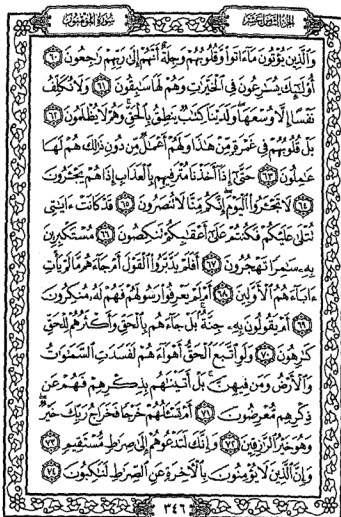 سُورَةُ المُؤْمِنُونَ
الجُزْءُ الثَّامِنَ عَشَرَ
وَالَّذِينَ يُؤْتُونَ مَا ءَاتَوا وَّقُلُوبُهُمْ وَجِلَةٌ أَنَّهُمْ إِلَىٰ رَبِّهِمْ رَٰجِعُونَ ٦٠
أُوْلَٰٓئِكَ يُسَٰرِعُونَ فِي ٱلْخَيْرَٰتِ وَهُمْ لَهَا سَٰبِقُونَ ٦١ وَلَا نُكَلِّفُ
نَفْسًا إِلَّا وُسْعَهَا وَلَدَيْنَا كِتَٰبٌ يَنطِقُ بِٱلْحَقِّ وَهُمْ لَا يُظْلَمُونَ ٦٢
بَلْ قُلُوبُهُمْ فِي غَمْرَةٍ مِّنْ هَٰذَا وَلَهُمْ أَعْمَٰلٌ مِّن دُونِ ذَٰلِكَ هُمْ لَهَا
عَٰمِلُونَ ٦٣ حَتَّىٰٓ إِذَآ أَخَذْنَا مُتْرَفِيهِم بِٱلْعَذَابِ إِذَا هُمْ يَجْـَٔرُونَ
٦٤ لَا تَجْـَٔرُوا۟ ٱلْيَوْمَ إِنَّكُم مِّنَّا لَا تُنصَرُونَ ٦٥ قَدْ كَانَتْ ءَايَٰتِي
تُتْلَىٰ عَلَيْكُمْ فَكُنتُمْ عَلَىٰٓ أَعْقَٰبِكُمْ تَنكِصُونَ ٦٦ مُسْتَكْبِرِينَ
بِهِۦ سَٰمِرًا تَهْجُرُونَ ٦٧ أَفَلَمْ يَدَّبَّرُوا۟ ٱلْقَوْلَ أَمْ جَآءَهُم مَّا لَمْ يَأْتِ
ءَابَآءَهُمُ ٱلْأَوَّلِينَ ٦٨ أَمْ لَمْ يَعْرِفُوا۟ رَسُولَهُمْ فَهُمْ لَهُۥ مُنكِرُونَ
٦٩ أَمْ يَقُولُونَ بِهِۦ جِنَّةٌۢ بَلْ جَآءَهُم بِٱلْحَقِّ وَأَكْثَرُهُمْ لِلْحَقِّ
كَٰرِهُونَ ٧٠ وَلَوِ ٱتَّبَعَ ٱلْحَقُّ أَهْوَآءَهُمْ لَفَسَدَتِ ٱلسَّمَٰوَٰتُ
وَٱلْأَرْضُ وَمَن فِيهِنَّ بَلْ أَتَيْنَٰهُم بِذِكْرِهِمْ فَهُمْ عَن
ذِكْرِهِم مُّعْرِضُونَ ٧١ أَمْ تَسْـَٔلُهُمْ خَرْجًا فَخَرَاجُ رَبِّكَ خَيْرٌ
وَهُوَ خَيْرُ ٱلرَّٰزِقِينَ ٧٢ وَإِنَّكَ لَتَدْعُوهُمْ إِلَىٰ صِرَٰطٍ مُّسْتَقِيمٍ ٧٣
وَإِنَّ ٱلَّذِينَ لَا يُؤْمِنُونَ بِٱلْءَاخِرَةِ عَنِ ٱلصِّرَٰطِ لَنَٰكِبُونَ ٧٤
٣٤٦